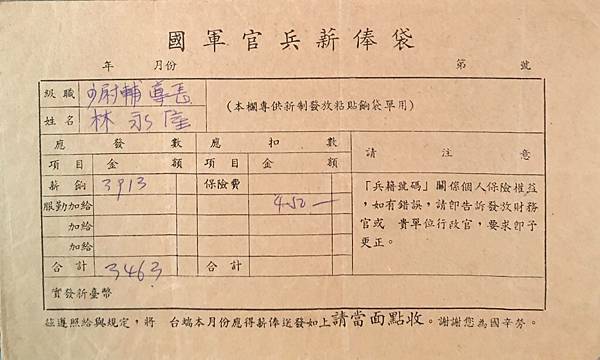 國軍官兵薪俸袋
年 月份 第 號
級職 少尉輔導長
姓名 林永隆
(本欄專供新制發放粘貼餉袋單用)
應發數 應扣數 請注意
項目 金額 項目 金額
薪餉 3913 保險費
服勤加給 450一
加給
加給
合計 3463 合計
實發新臺幣
「兵籍號碼」關係個人保險權益
,如有錯誤,請即告訴發放財務
官或 貴單位行政官,要求即予
更正。
茲遵照給與規定,將 台端本月份應得薪俸送發如上請當面點收。謝謝您為國辛勞。